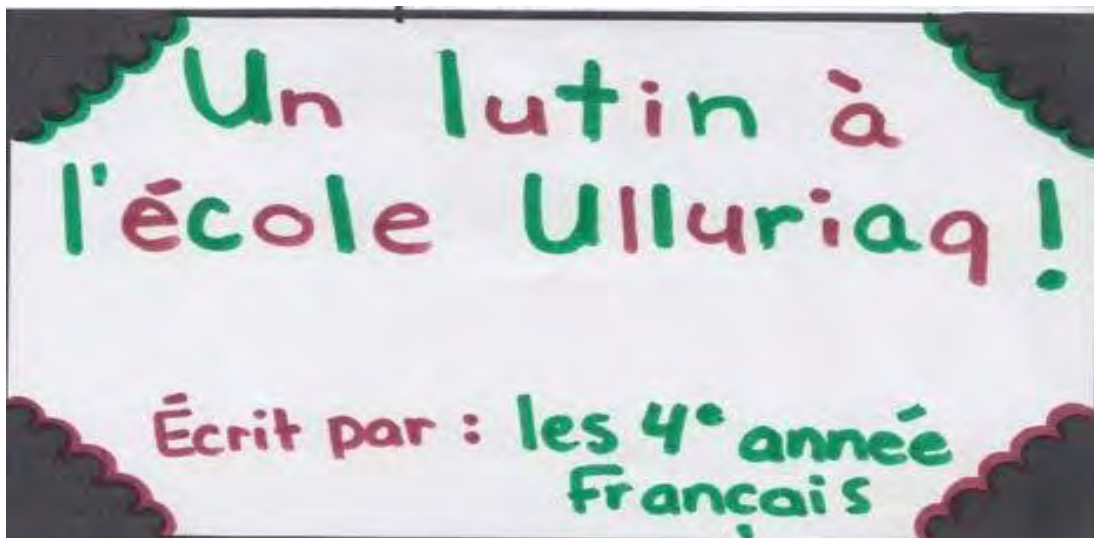 Un lutin à
l'école Ulluriaq !
Écrit par : les 4e anneé
Français